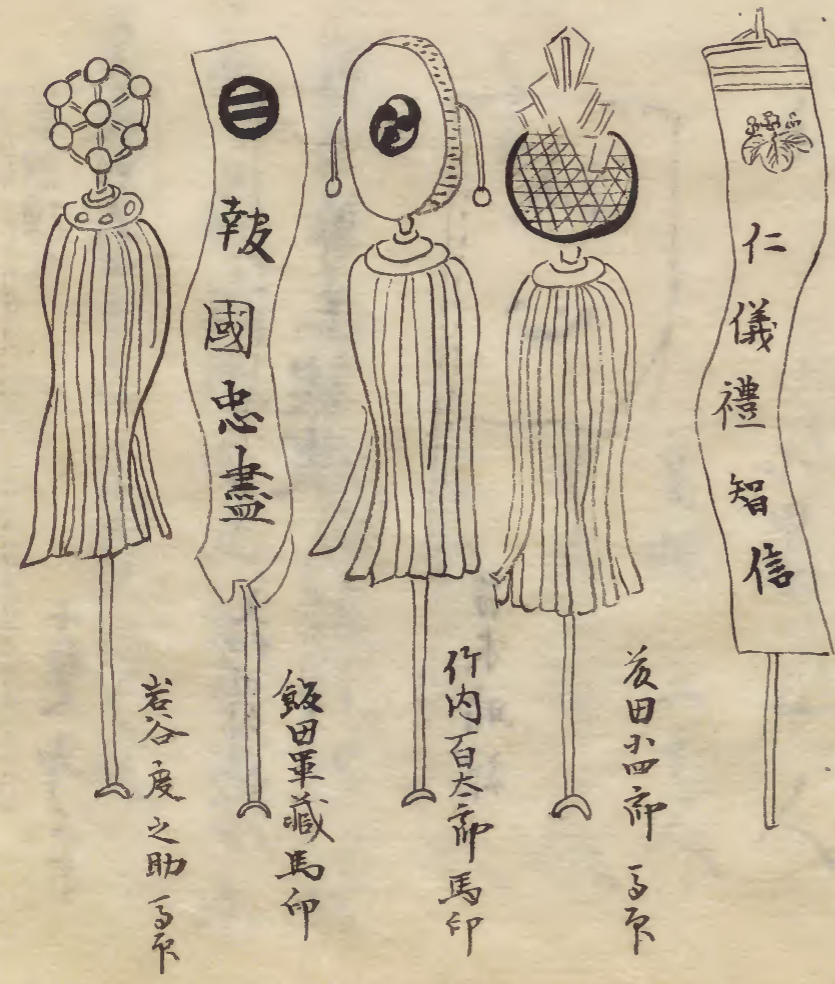 仁儀禮智信
藤田小四郎 馬印
竹内百太郎 馬印
報國忠盡
飯田軍藏馬印
岩谷度之助 馬印